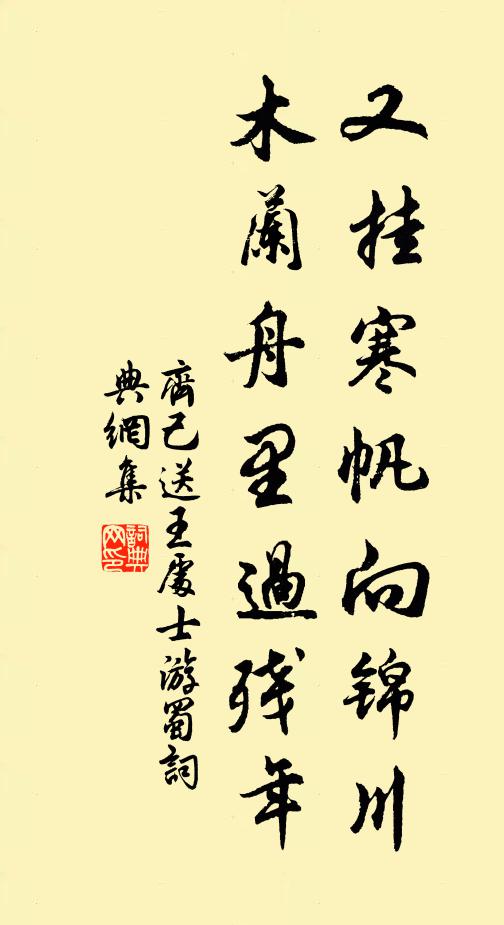 又挂寒帆向锦川
木蘭舟里過残年
齊己送王處士游蜀詞
典網集
詞典网印